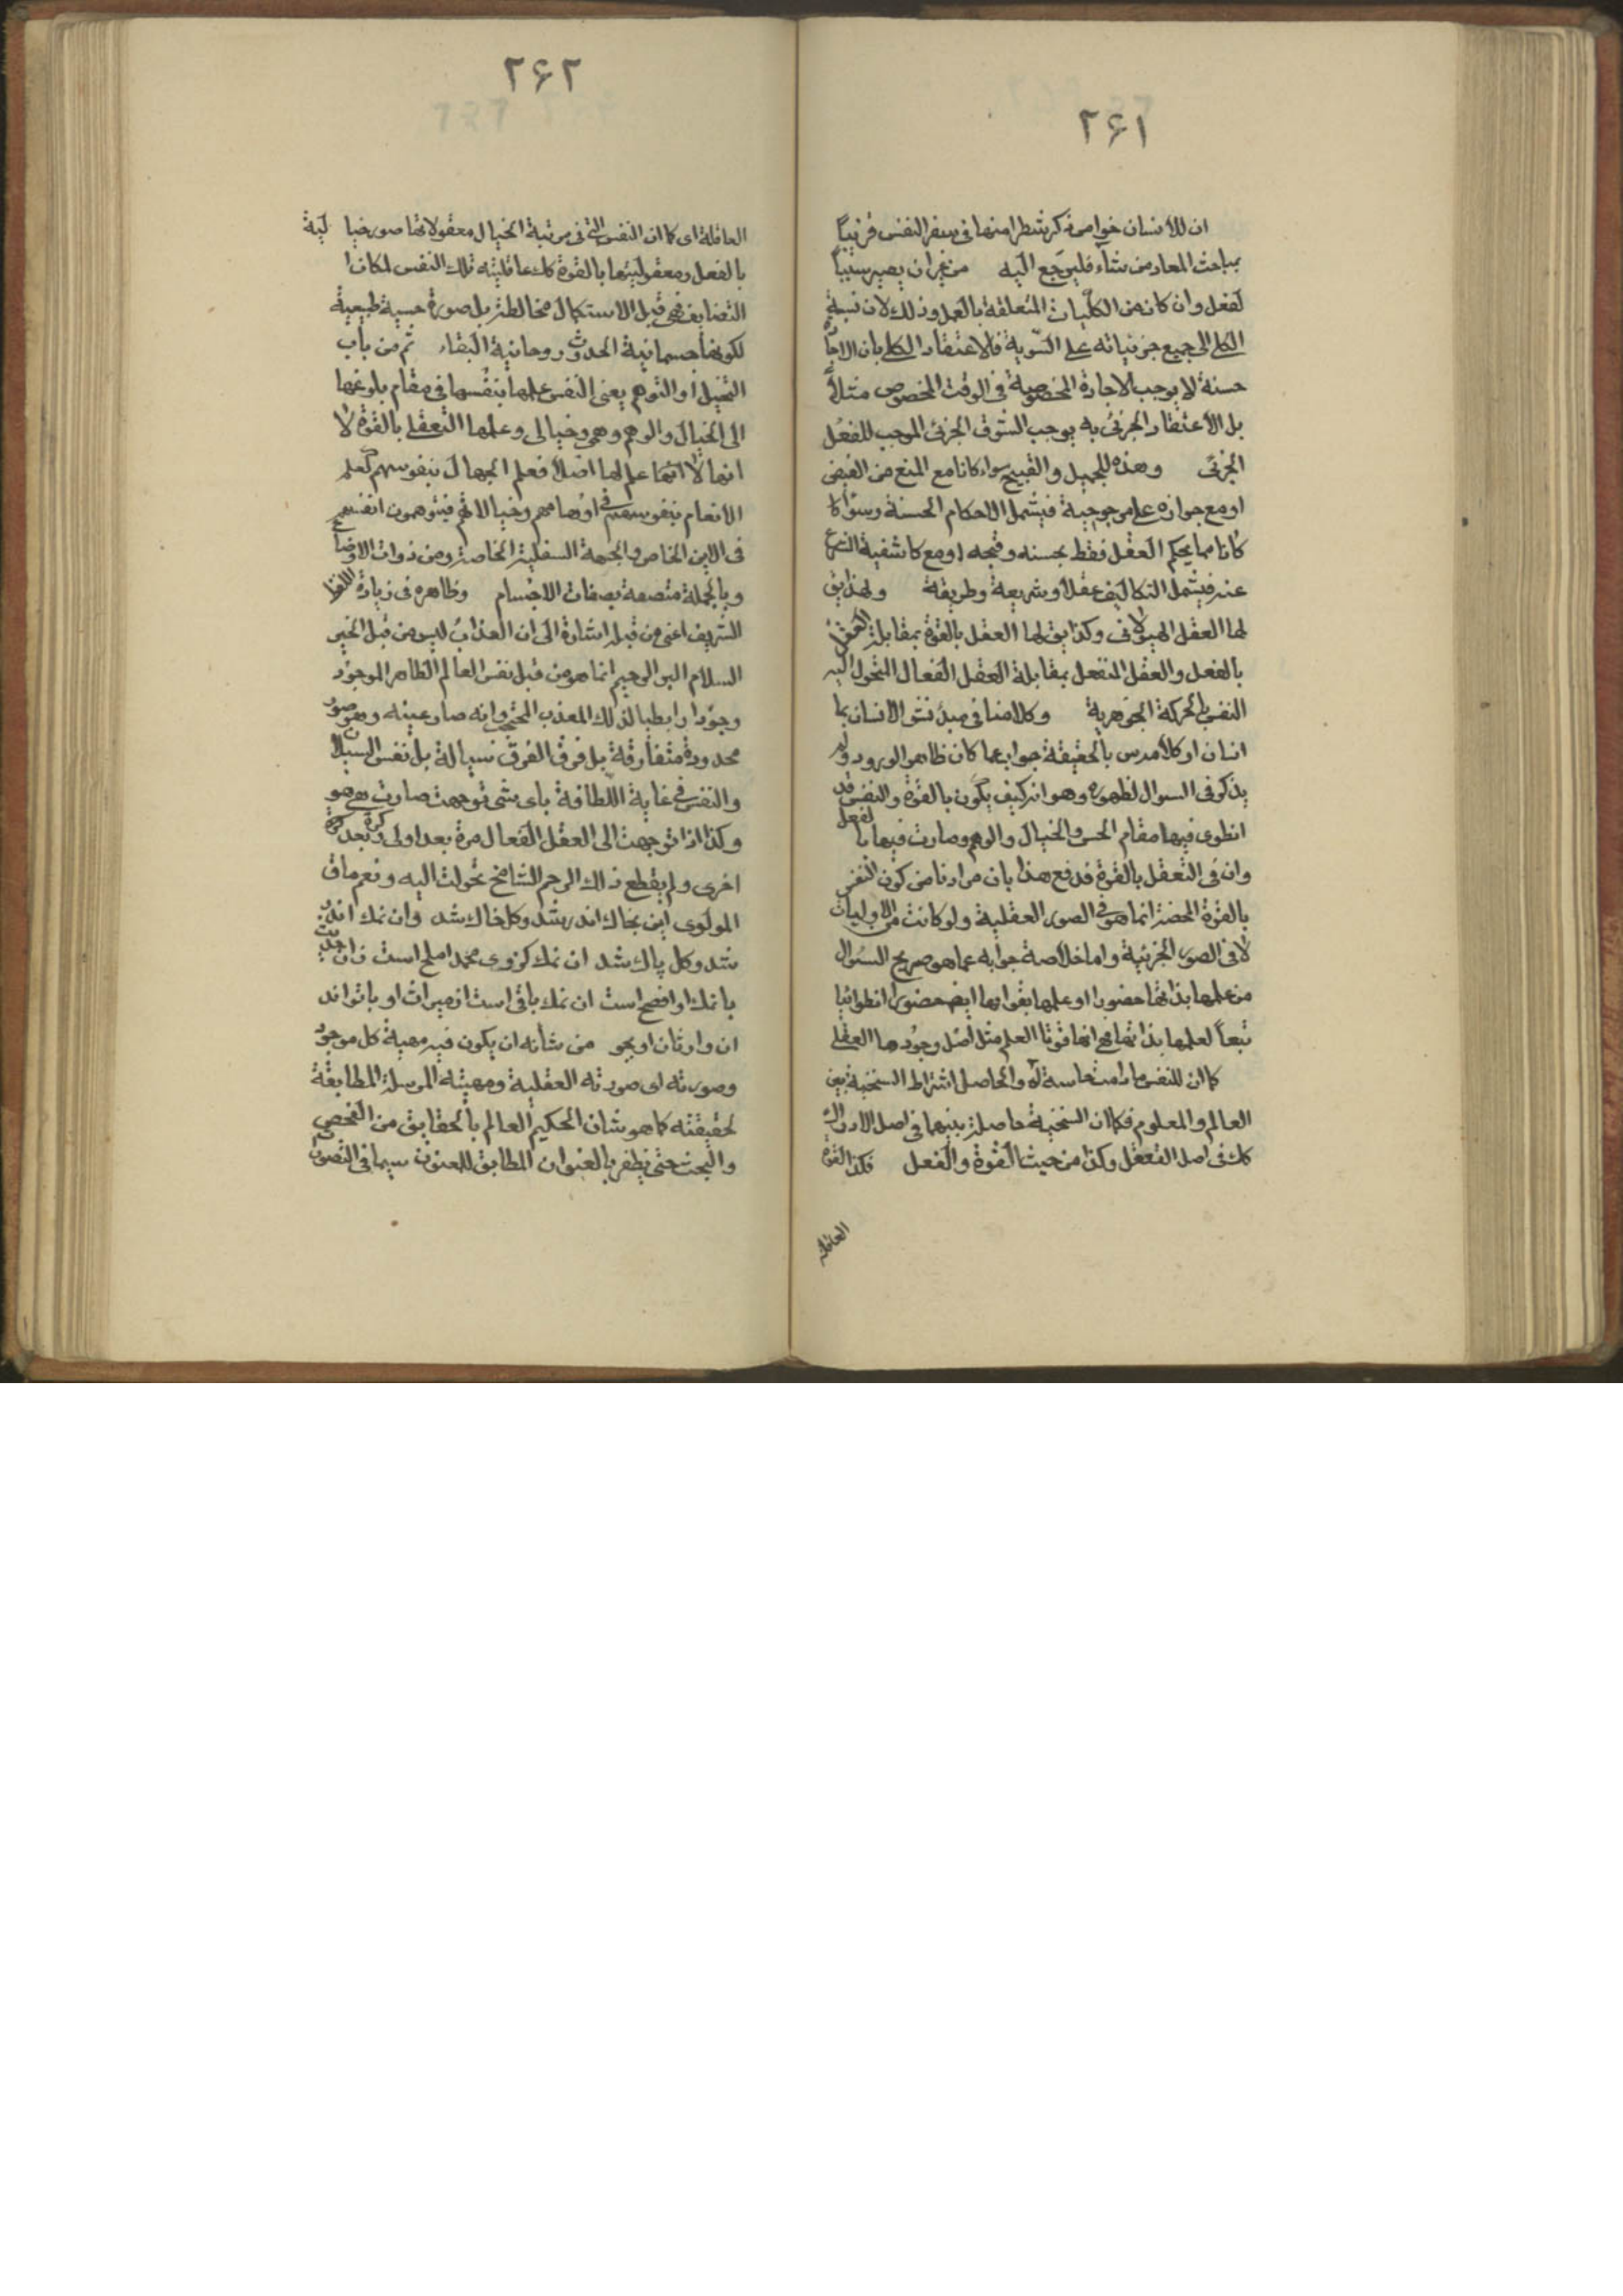 ۲۶۱
ان للانسان خواص ذكر شطرا منها فى سفر النفس قريباً
بمباحث المعاد من شاء فليرجع اليه من غير ان يصير سبباً
لفعل وان كان من الكليات المتعلقة بالعمل وذلك لان نسبة
الكلى الى جميع جزئياته على السوية فالاعتقاد الكلى بان الاجارة
حسنة لا يوجب الاجارة المخصوصة فى الوقت المخصوص مثلاً
بل الاعتقاد الجزئى به يوجب الشوق الجزئى الموجب للفعل
الجزئى وهذه للجميل والقبيح سواء كانا مع المنع من النقيض
او مع جوازه على مرجوحية فيشمل الاحكام الخمسة وسواء
كانا مما يحكم العقل فقط بحسنه وقبحه او مع كاشفية الشرع
عنه فيشمل التكاليف عقلا وشريعة وطريقة ولهذا يق
لها العقل الهيولانى وكذا يق لها العقل بالقوة بمقابلة العقل
بالفعل والعقل المنفعل بمقابلة العقل الفعال المتحول اليه
النفس بالحركة الجوهرية وكلامنا فى مبدء نشو الانسان بما
انسان او كلامه س بالحقيقة جواب عما كان ظاهر الورود ولم
يذكر فى السوال لظهوره وهو انه كيف يكون بالقوة والنفس قد
انطوى فيها مقام الحس والخيال والوهم وصارت فيها بالفعل
وان فى التعقل بالقوة فدفع هذا بان مرادنا من كون النفس
بالقوة المحضة انما هو فى الصور العقلية ولو كانت من الاوليات
لا فى الصور الجزئية واما خلاصة جوابه عما هو صريح السؤال
من علمها بذاتها حضورا وعلمها بقواها ايضه حضورا انطوائيا
تبعاً لعلمها بذاتها هى انها قوتا العلم مثل اصل وجودها العقلى
كما ان للنفس ما دامت حاسة له والحاصل اشتراط السنخية بين
العالم والمعلوم فكما ان السنخية حاصلة بينهما فى اصل الادراك
كك فى اصل التعقل وكذا من حيث القوة والفعل فكذا القوة
العاقلة
۲۶۲
العاقلة اى كما ان النفس التى فى مرتبة الخيال معقولاتها صور خيالية
بالفعل ومعقوليتها بالقوة كك عاقليته تلك النفس لمكان
التضايف فهى قبل الاستكمال مخالطة بل صورة حسية طبيعية
لكونها جسمانية الحدوث روحانية البقاء ثم من باب
التخيل او التوهم يعنى النفس علمها بنفسها فى مقام بلوغها
الى الخيال والوهم وهمى وخيالى وعلمها التعقلى بالقوة لا
انها لا علم لها اصلا فعلم الجهال بنفوسهم كعلم
الانعام بنفوسهم فى اوهامهم وخيالاتهم فيتوهمون انفسهم
فى الاين الخاص والجهة السفلية الخاصة ومن ذوات الاوضاع
وبالجملة متصفة بصفات الاجسام وظاهره فى زيادة اللفظ
الشريف اعنى من قبله اشارة الى ان العذاب ليس من قبل الخير
السلام البر الرحيم انما هو من قبل نفس العالم الظاهر الموجود
وجودا رابطيا لذلك المعذب المحتجب وانه صار عينه وهو صور
محدودة متفارقة بل فرق الفرق سيالة بل نفس السيلان
والنفس فى غاية اللطافة باى شئ توجهت صارت هى هو
وكذا اذا توجهت الى العقل الفعال مرة بعد اولى وكرة بعد كرة
اخرى ولم يقطع ذلك الرحم الشامخ تحولت اليه ونعم ما ق
المولوى اين بخاك اندر شد وكل خاك شد وان نمك اندر
شد وكل پاك شد ان نمك كز وى محمد املح است زان حديث
با نمك او افصح است ان نمك باقى است از ميراث او با تواند
ان وارثان او بجو من شأنه ان يكون فيه مهية كل موجود
وصورته اى صورته العقلية ومهيته المرسلة المطابقة
لحقيقته كما هو شان الحكيم العالم بالحقايق من الفحص
والبحث حتى يظفر بالعنوان المطابق للمعنون سيما فى التصور